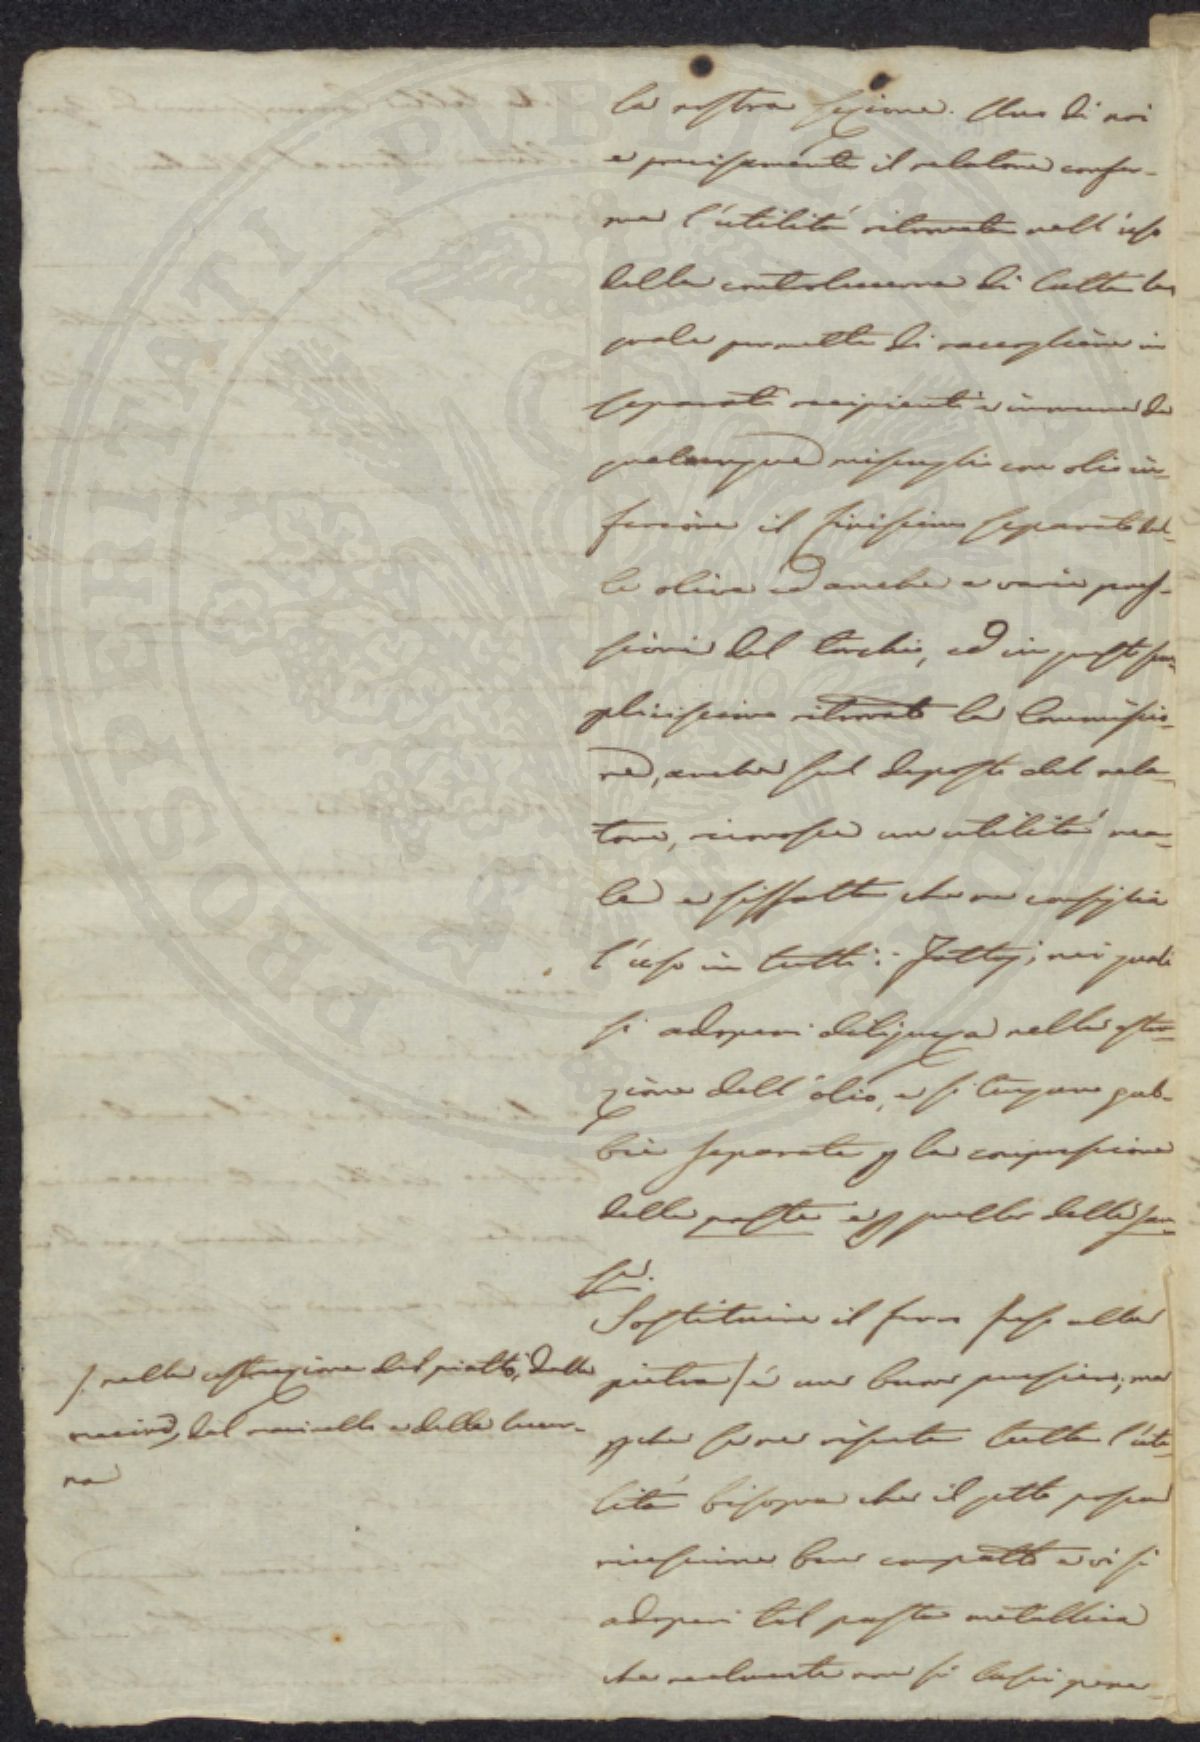 la nostra sezione. Uno di noi
e precisamente il relatore confer-
ma l'utilità ritrovata nell'uso
della controlucerna di latta la
quale permette di raccogliere in
separati recipienti e immune da
qualunque miscuglio con olio in-
feriore il finissimo separato dal-
le olive ed anche a varie pres-
sioni del torchio, ed in questo sem-
plicissimo ritrovato la Commissio-
ne, anche sul deposto del rela-
tore, riconosce un utilità rea-
le e siffatta che ne consiglia
l'uso in tutti i fattoj, nei quali
si adoperi diligenza nella estra-
zione dell'olio, e si tengano gab-
bie separate p la compressione
della pasta e p quella della san-
sa.
Sostituire il ferro fuso alla
pietra / è un buon pensiero, ma
pche se ne risenta tutta l'uti-
lità bisogna che il getto possa
riescire ben compatto e vi si
adoperi tal pasta metallica
che realmente non si lasci pene-
/ nella costruzione del piatto, della
macine, del navicello e della lucer-
na
PROSPERITATI PUBLICAE